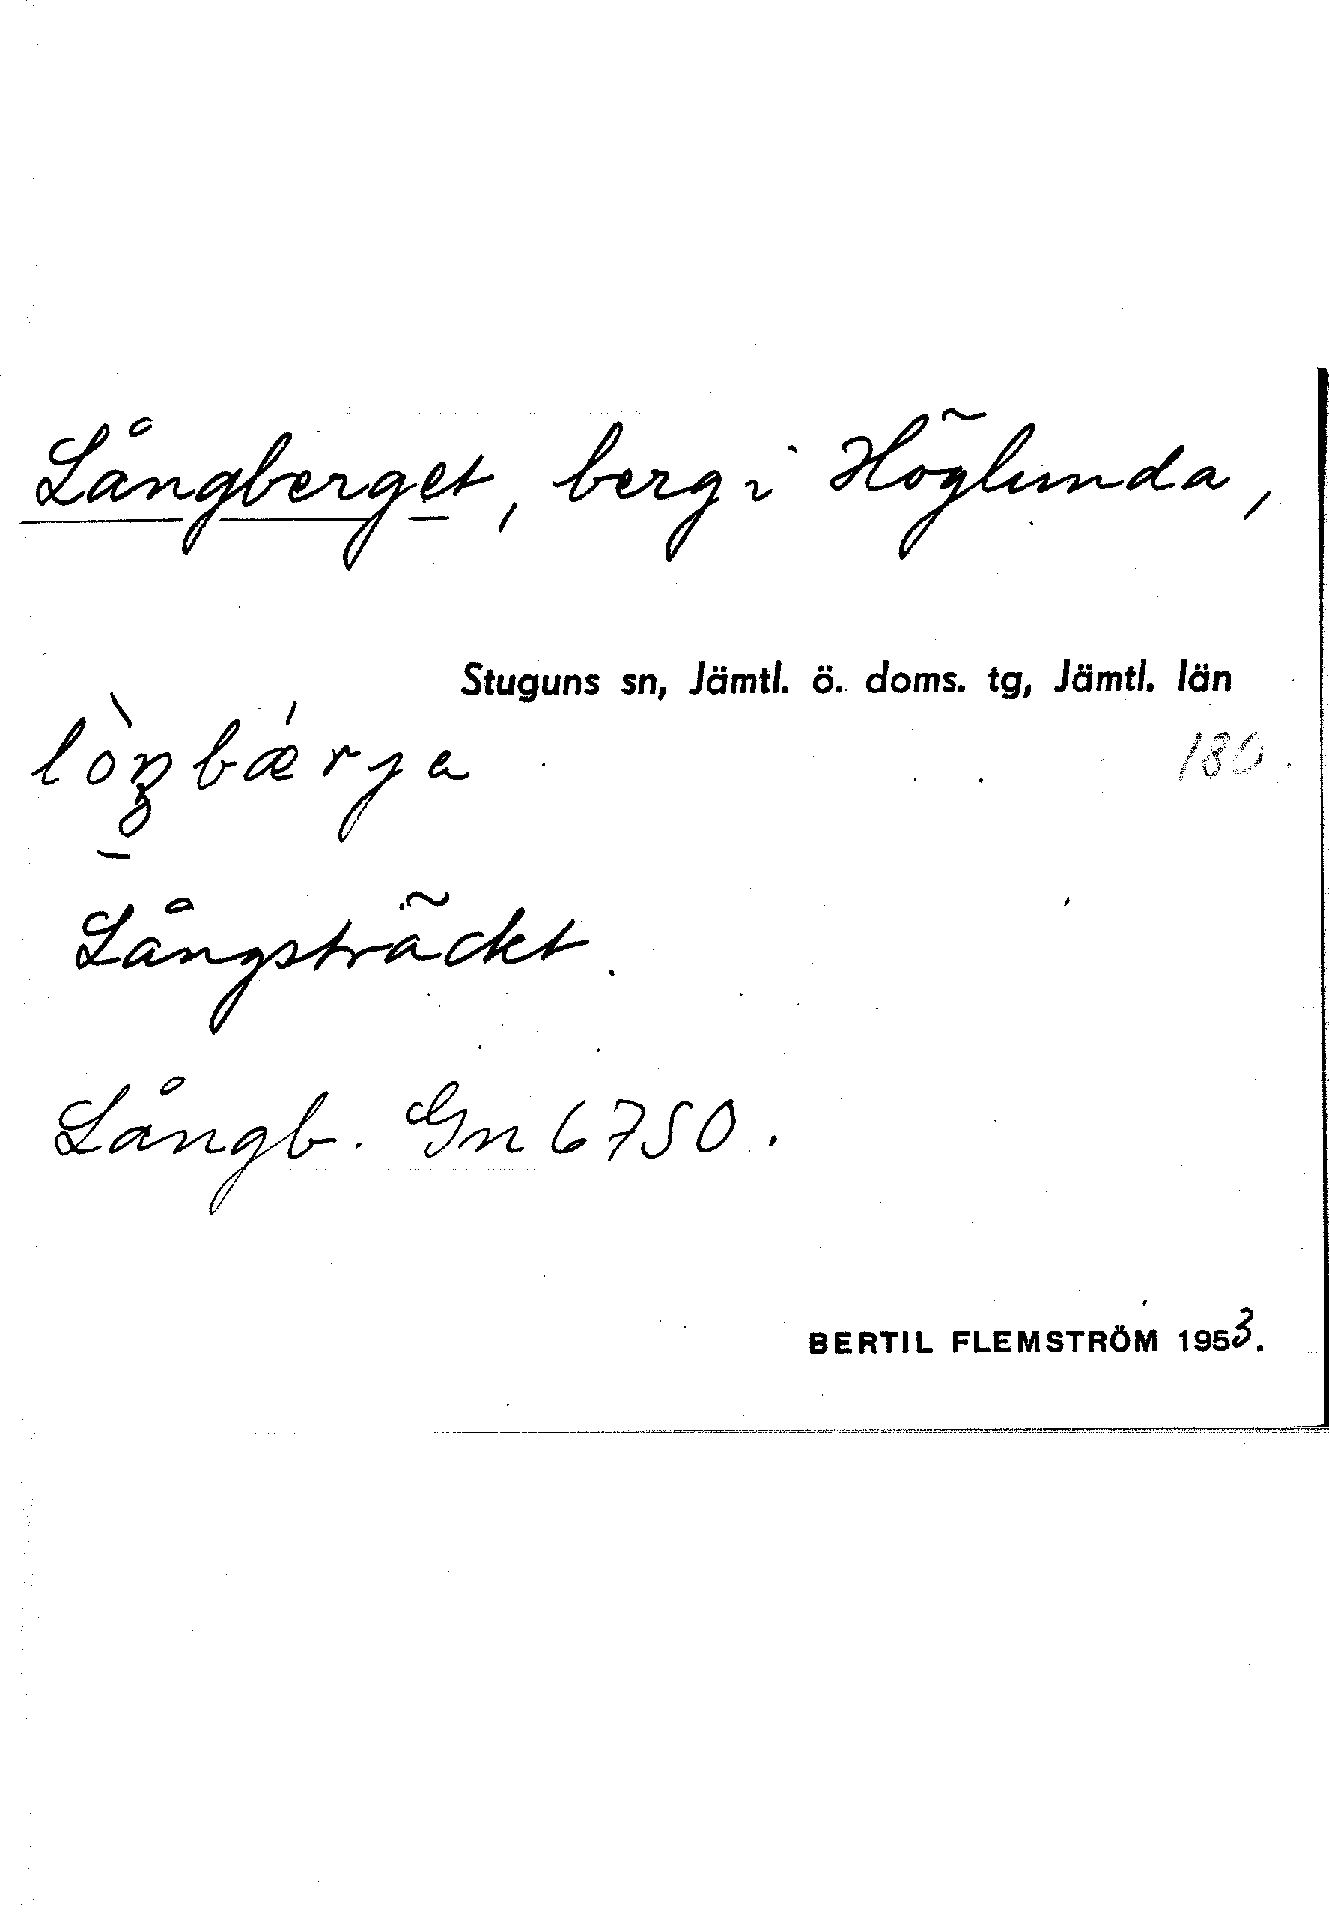 Långberget, berg i Höglunda,
Stuguns sn, Jämtl. ö. doms. tg, Jämtl. län
180.
Långsträckt.
Långb. Gn 6750.
BERTIL FLEMSTRÖM 1953.